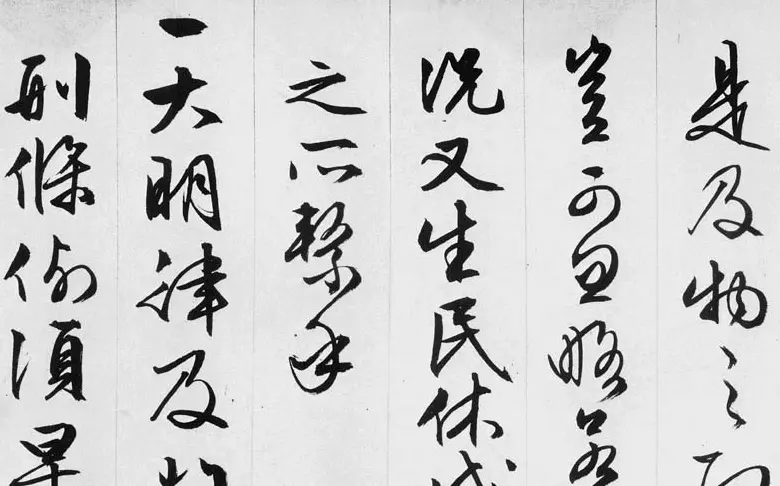 是及物之
豈可忽略
況又生民休戚
之所繫乎
一大明律及
刑條例須早